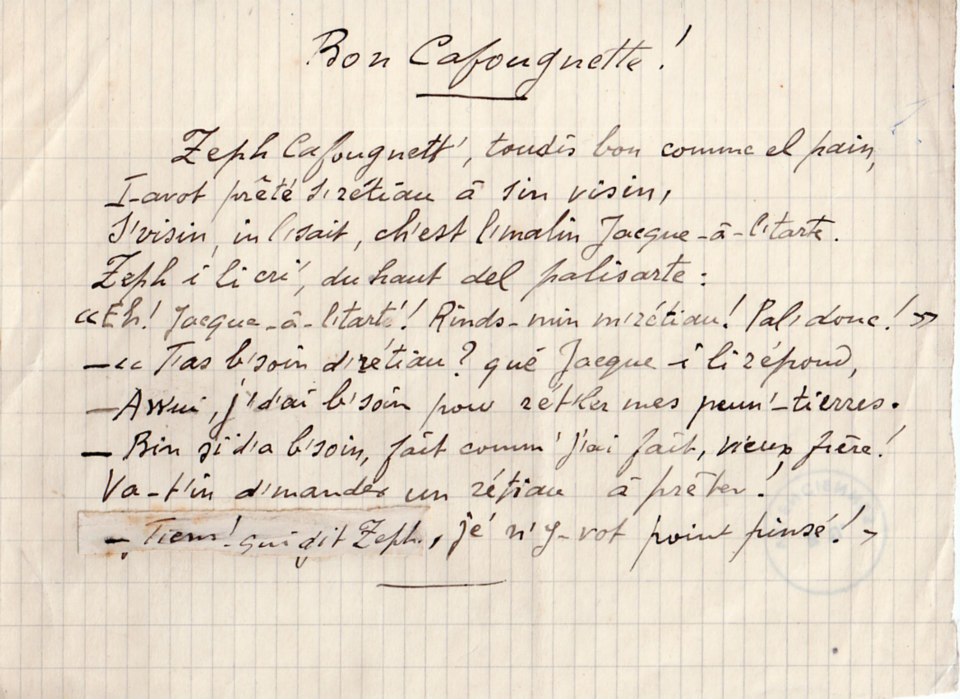 Bon Cafougnette !
Zeph Cafougnett', toudis bon comme el pain,
I-avot prêté s'rétiau à sin visin,
S'visin, in l'sait, ch'est l'malin Jacque-à-l'tarte.
Zeph i li cri', du haut del palisarte :
«Eh! Jacque-à-l'tarte! Rinds-min m'rétiau! Pal'donc!»
—« T'as b'soin d'rétiau? qué Jacque-i li répond,
—Awui, j'd'ai b'soin pour rét'ler mes peun'-tierres.
— Bin si d'a b'soin, fait comm' j'ai fait, vieux frère!
Va-t'in d'mander un rétiau à prêter!
— Tiens! qui dit Zeph, jé n'y-vot point pinsé! »